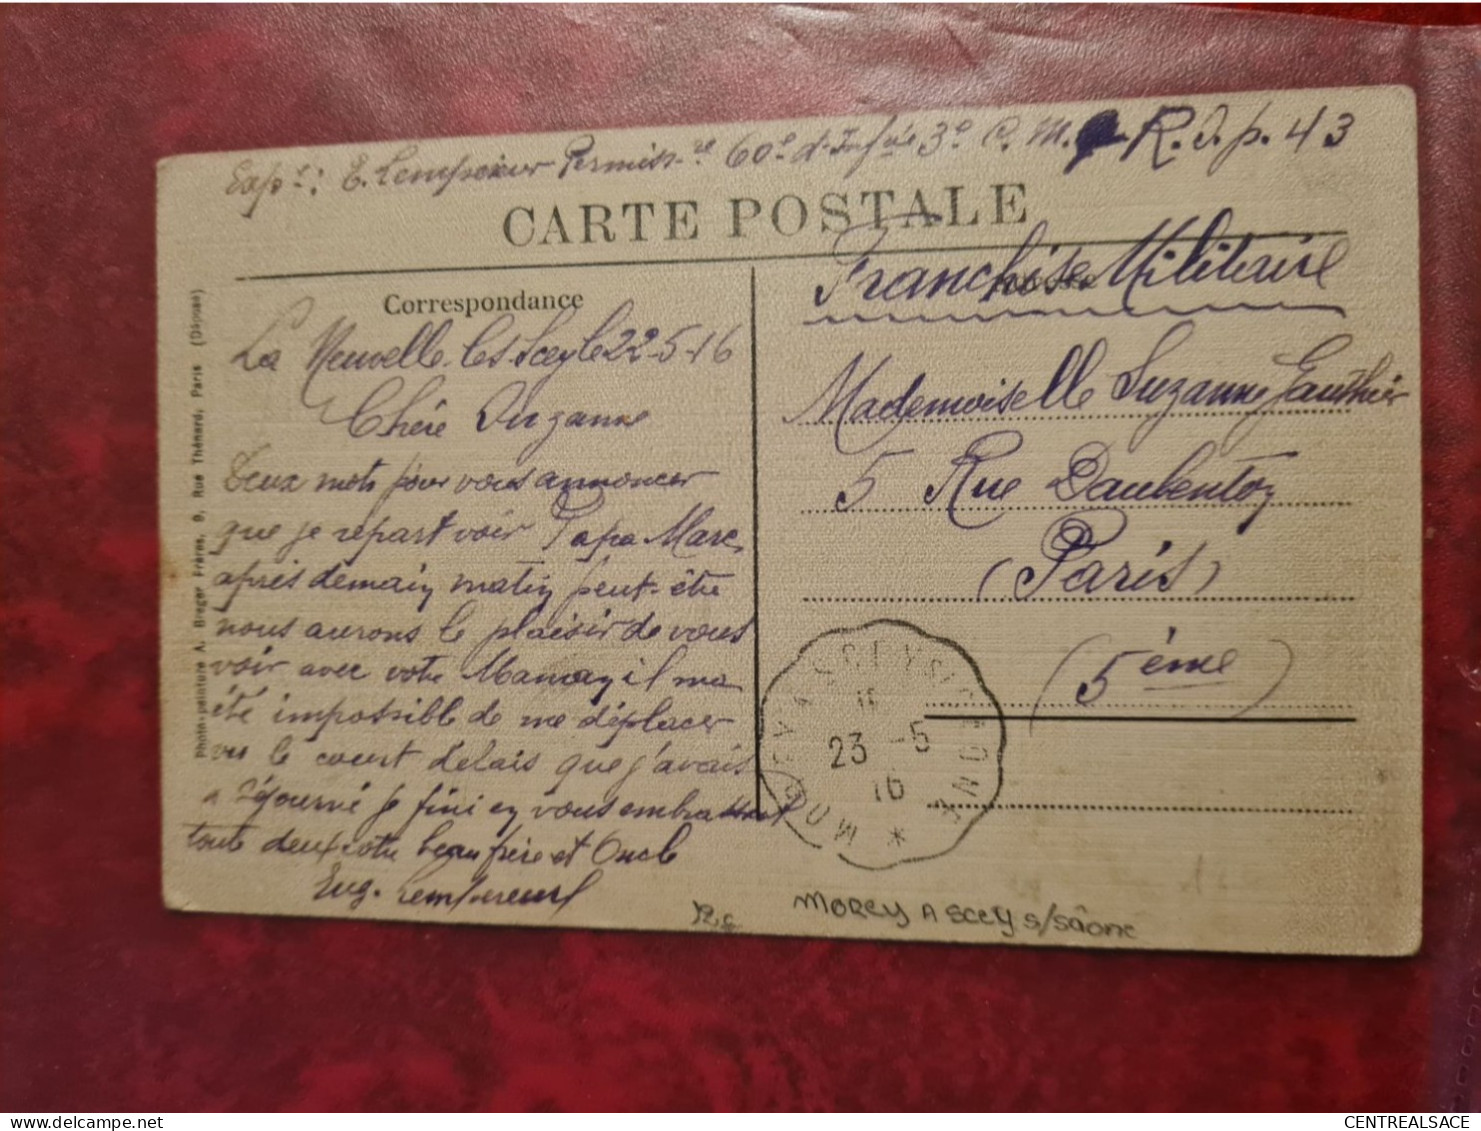 Exp r: E. Lempereur Permiss re 60e d'Infie 3e C. M. R. S. p. 43
CARTE POSTALE
Franchise Militaire
Correspondance
La Neuvelle-les-Scey le 22-5-16
Chère Suzanne
Deux mots pour vous annoncer
que je repart voir Papa Marc
après demain matin peut-être
nous aurons le plaisir de vous
voir avec votre Maman il ma
été impossible de me déplacer
vu le court delais que j'avais
a séjourné je fini en vous embrassant
toute deux votre beau frère et Oncle
Eug. Lempereur
Mademoiselle Suzanne Gauthier
5 Rue Daubenton
(Paris)
(5ème)
Photo-peinture A. Breger Frères, 9, Rue Thénard, Paris (Déposé)
MOREY A SCEY S/SAONE *
23 -5
16
MOREY A SCEY S/SAONE
CENTREALSACE